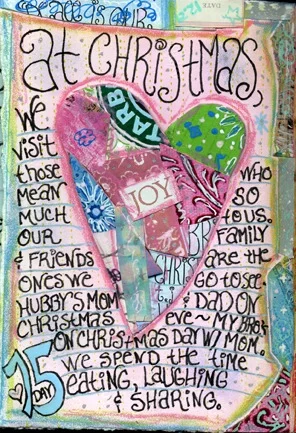 at CHRiSTMAS,
We
visit
those WHO
MEAN SO
MUCH TO US.
OUR FAMILY
& FRIENDS are the
ONES WE GO TO SEE.
HUBBY'S MOM & DAD ON
CHRISTMAS EVE ~ MY
ON CHRISTMAS DAY W/ MOM.
We SPEND the TIME
EATING, LAUGHING
& SHARING.
JOY
CHRIS
DAY
25
DATE